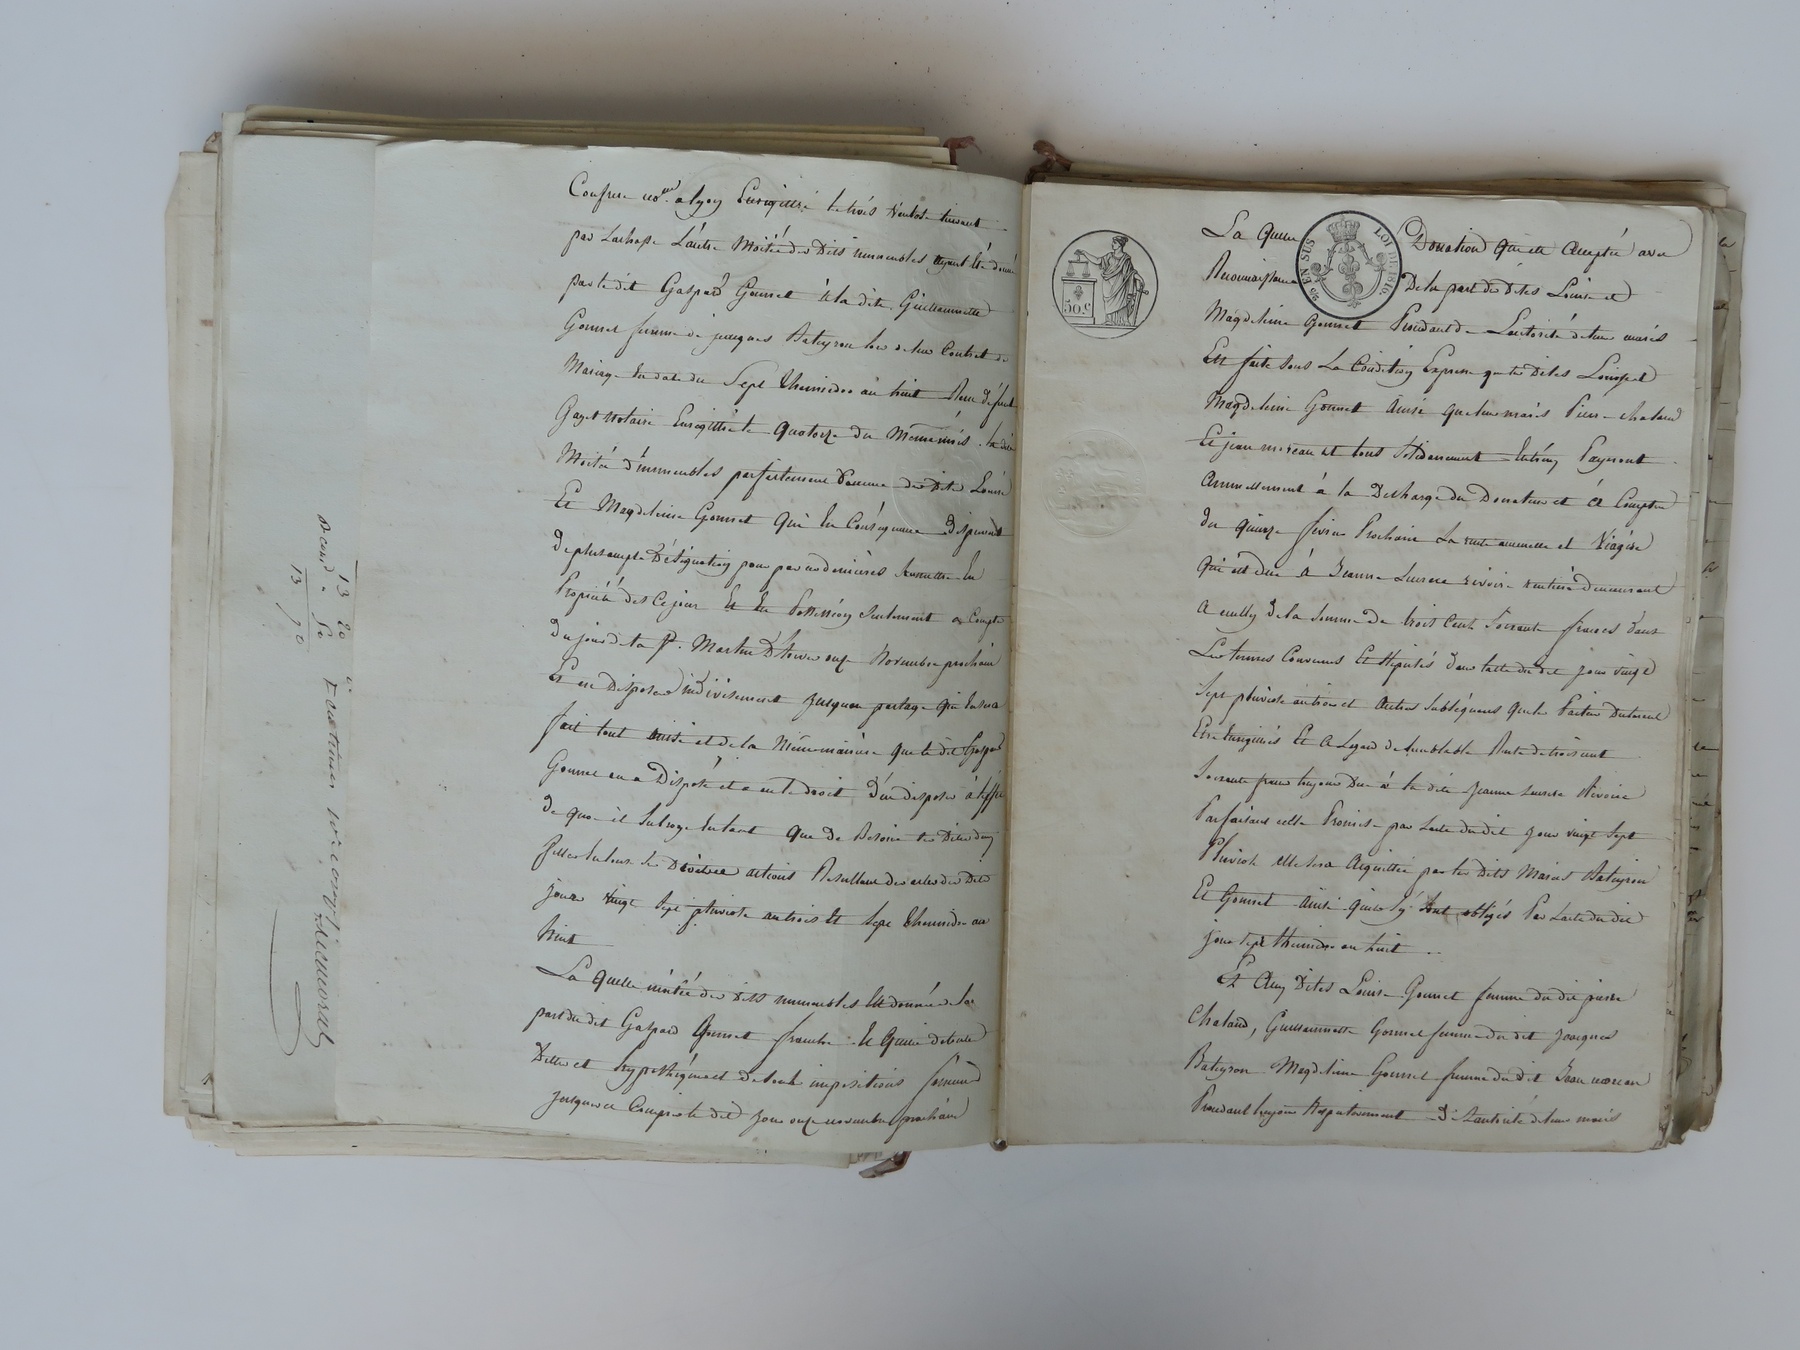 Confrere no.re a lyon Enregistré le trois Ventose suivant
par Lachape L'autre Moitié des Dits immeubles ayant Eté donné
par le dit Gaspard Gonnet à la dite Guillaumette
Gonnet femme de jacques Bateyron lors de leur Contrat de
Mariage En date du Sept thermidor an huit Recu défunt
Gayet notaire Enregistré le Quatorze du Même mois. la dite
Moitié d'immeubles parfaitement Connue des dites Louise
Et Magdeleine Gonnet Qui En Conséquence dispensent
de plus ample Désignation pour par ces dernières En
Propriété dès Ce jour Et En Possession Seulement a Compter
du jour de la St. Martin D'hiver onze Novembre prochain
Et en Disposer indivisement jusqu'au partage Qui En Sera
fait tout ainsi et de la Même manière que le dit Gaspard
Gonnet en a Disposé et a eu le droit d'en disposer à l'effet
de quoi il Subroge En tant que de Besoin les Dites deux
filles En tous Ses Droits et actions Resultant des actes des Dits
jours vingt Sept pluviose an trois Et Sept thermidor an
huit
La quelle moitié des dits immeubles Est donnée de la
part du dit Gaspard Gonnet franche Et Quitte de toute
Dette et hypothèque et de toute impositions
jusques et Compris le dit jour onze novembre prochain
13 20
13 70
50 C
EN SUS
LOI DE 1816.
La Quelle Donation Qui est Acceptée avec
Reconnaissance De la part des Dites Louise et
Magdeleine Gonnet Procedant de L'autorité de leurs maris
Est faite Sous La Condition Expresse que les Dites Louise et
Magdeleine Gonnet Ainsi que leurs maris Pierre Chatard
Et jean moreau Et tous Solidairement Payeront
Annuellement à la Décharge du Donateur et à Compter
du quinze fevrier Prochain La rente annuelle et Viagère
Qui est Due à Jeanne rivoire rentière demeurant
a de la Somme de trois Cent Soixante francs dans
Les termes Convenus Et Stipulés dans l'acte du dit jour vingt
Sept pluviose an trois et Autres Subséquens que les Parties
Et à L'egard de Semblable Rente de trois cent
Soixante francs toujours Due à la dite Jeanne Rivoire
par l'acte du dit jour vingt Sept
Pluviose elle Sera Acquittée par les Dits Mariés Bateyron
Et Gonnet Ainsi qu'ils s'y Sont obligés Par L'acte du dit
jour Sept thermidor an huit
Et Aux Dites Louise Gonnet femme du dit pierre
Chatard, Guillaumette Gonnet femme du dit Jacques
Bateyron Magdeleine Gonnet femme du dit Jean moreau
Procedant toujours Respectivement De L'autorité de leurs maris